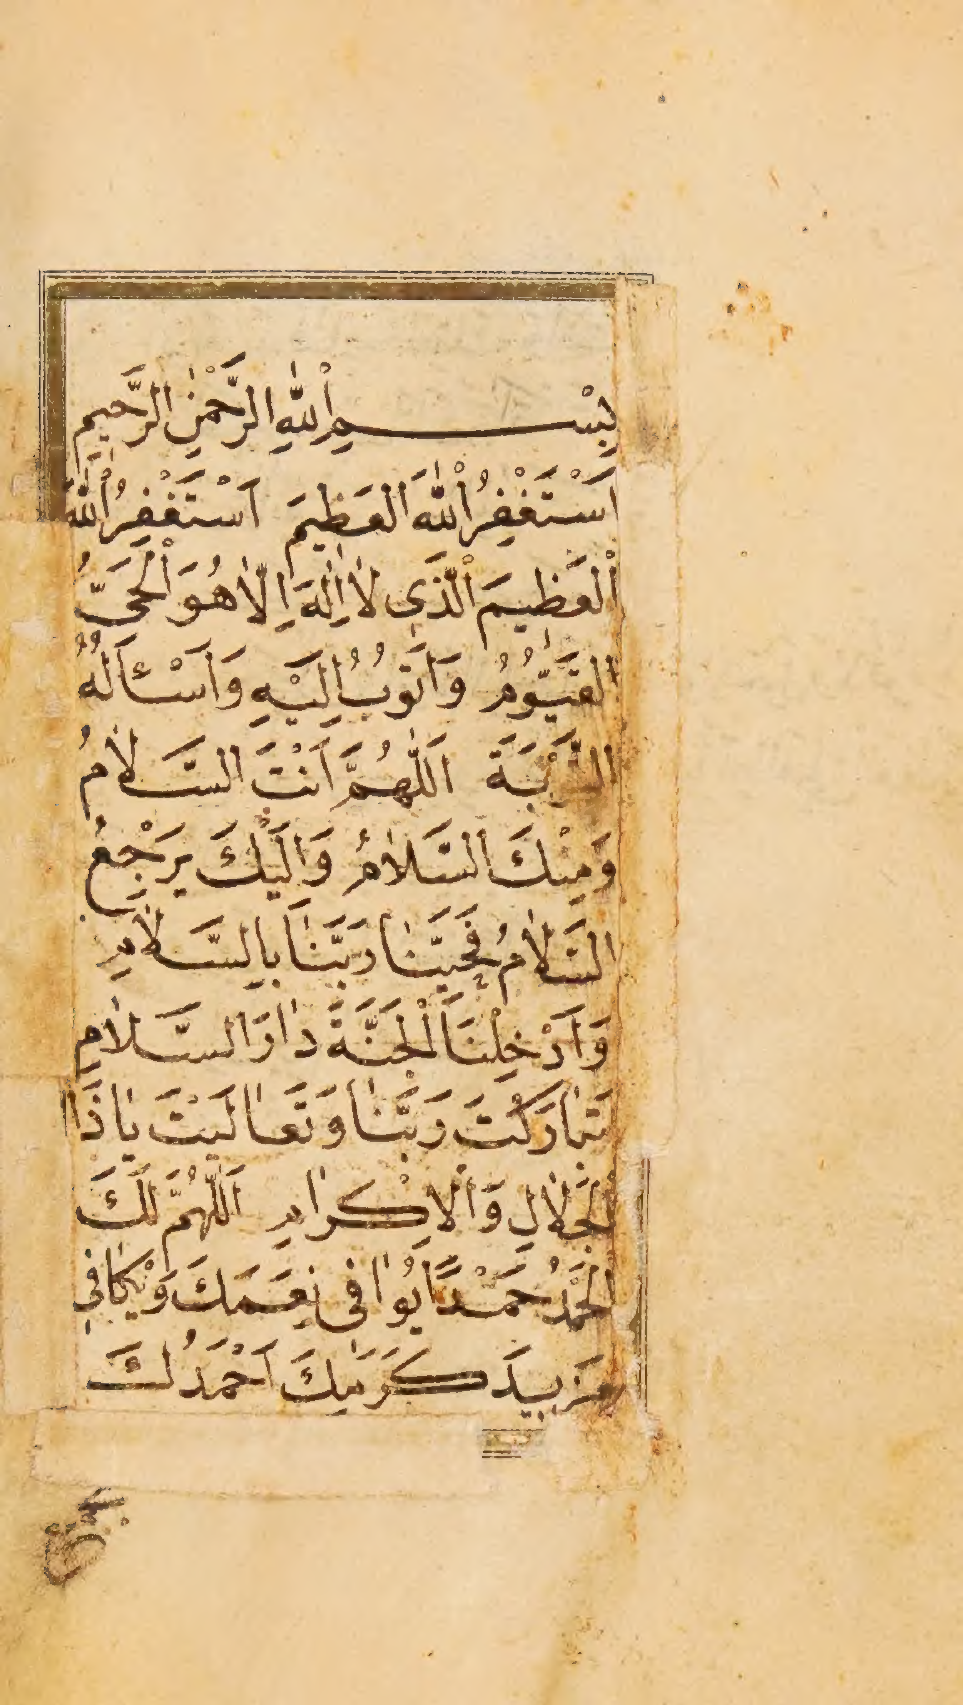 بِسْمِ اللّٰهِ الرَّحْمٰنِ الرَّحِيمِ
اَسْتَغْفِرُ اللّٰهَ الْعَظِيمَ اَسْتَغْفِرُ اللّٰهَ
الْعَظِيمَ الَّذِي لَا اِلٰهَ اِلَّا هُوَ الْحَيُّ
الْقَيُّومُ وَاَتُوبُ اِلَيْهِ وَاَسْئَالُهُ
التَّوْبَةَ اَللّٰهُمَّ اَنْتَ السَّلَامُ
وَمِنْكَ السَّلَامُ وَاِلَيْكَ يَرْجِعُ
السَّلَامُ فَحَيِّنَا رَبَّنَا بِالسَّلَامِ
وَاَدْخِلْنَا الْجَنَّةَ دَارَ السَّلَامِ
تَبَارَكْتَ رَبَّنَا وَتَعَالَيْتَ يَاذَا
الْجَلَالِ وَالْاِكْرَامِ اَللّٰهُمَّ لَكَ
الْحَمْدُ حَمْدًا يُوَافِي نِعَمَكَ وَيُكَافِي
مَزِيدَ كَرَمِكَ اَحْمَدُكَ